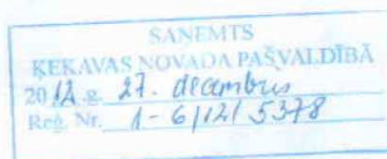 SAŅEMTS
ĶEKAVAS NOVADA PAŠVALDĪBĀ
2012.g. 27. decembris
Reģ. Nr. 1-6/12/5378